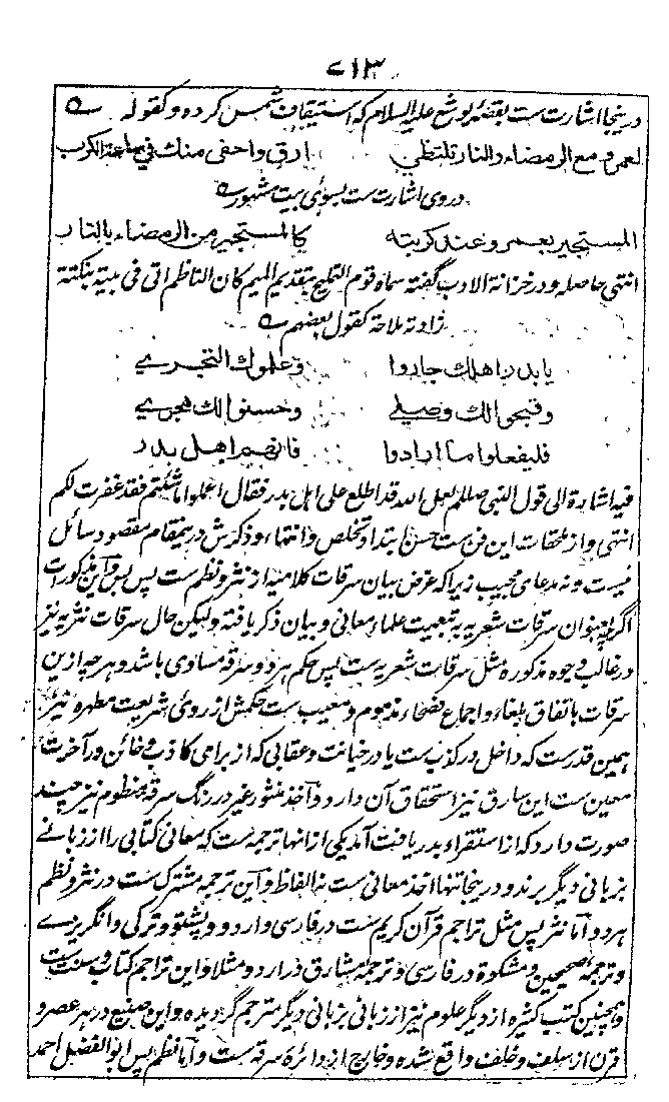 ۷۱۳
درینجا اشارت ست بقصهٔ یوشع علیه السلام که استیقاف شمس کرده و کقوله ے
لعمرو مع الرمضاء والنار تلتظی ارق واحفی منک فی ساعة الکرب
دروی اشارت ست بسوئی بیت مشهور ے
المستجیر بعمرو عند کربته کالمستجیر من الرمضاء بالنار
انتهی حاصله و در خزانة الادب گفته سماه قوم التملیح بتقدیم المیم کان الناظم اتی فی بیته بنکتة
زادته ملاحة کقول بعضهم ے
یا بدر اهلک جاروا وعلموک التجری
وقبحوا لک وصلی وحسنوا لک هجری
فلیفعلوا ما ارادوا فانهم اهل بدر
فیه اشارة الی قول النبی صلعم لعل الله قد اطلع علی اهل بدر فقال اعملوا ما شئتم فقد غفرت لکم
انتهی و از ملحقات این فن ست حسن ابتدا و تخلص و انتهاء و ذکرش درینمقام مقصود سائل
نیست و نه مدعای مجیب زیرا که غرض بیان سرقات کلامیه از نثر و نظم ست پس بس و این مذکورات
اگرچه بعنوان سرقات شعریه به تبعیت علماء معانی و بیان ذکر یافته ولیکن حال سرقات نثریه نیز
در غالب وجوه مذکوره مثل سرقات شعریه ست پس حکم هر دو سرقه مساوی باشد و هرچه ازین
سرقات باتفاق بلغاء و اجماع فصحاء مذموم و معیب ست حکمش از روئی شریعت مطهره نیز
همین قدرست که داخل در کذب ست یا در خیانت و عقابی که از برای کاذب و خائن در آخرت
معین ست این سارق نیز استحقاق آن دارد و اخذ منثور غیر در رنگ سرقه منظوم نیز چند
صورت دارد که از استقراء بدریافت آمد یکی ازانها ترجمه ست که معانی کتابی را از زبانے
بزبانی دیگر برند و درینجا تنها اخذ معانی ست نه الفاظ و این ترجمه مشترک ست در نثر و نظم
هر دو اما نثر پس مثل تراجم قرآن کریم ست در فارسی و اردو و پشتو و ترکی و انگریزے
و ترجمهٔ صحیحین و مشکوة در فارسی و ترجمهٔ مشارق در اردو مثلا و این تراجم کتاب و سنت ست
و همچنین کتب کثیره از دیگر علوم نیز از زبانی بزبانی دیگر مترجم گردیده و این صنیع در هر عصر و
قرن از سلف و خلف واقع شده و خارج از دائرهٔ سرقه ست و اما نظم پس ابو الفضل احمد